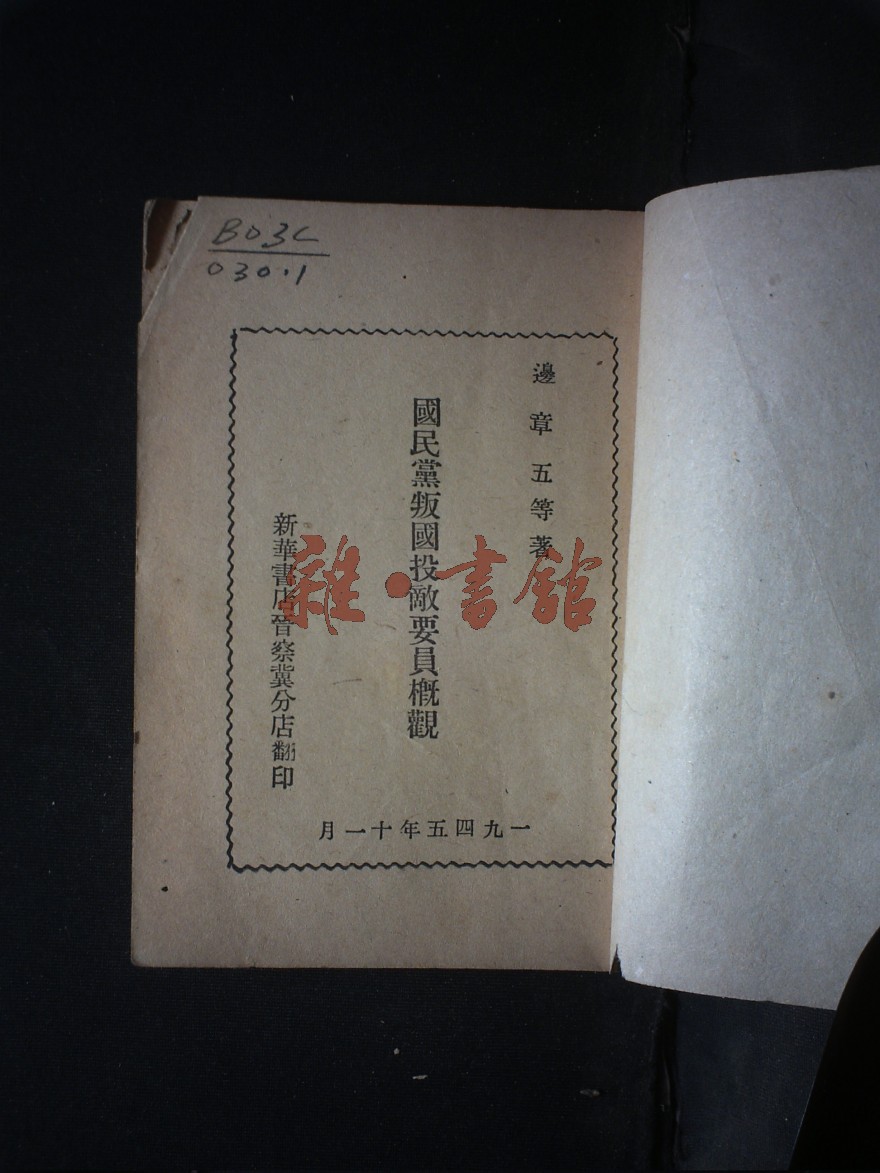 BO3L
030.1
邊章五等著
國民黨叛國投敵要員概觀
新華書店晉察冀分店翻印
一九四五年十一月
雜·書館